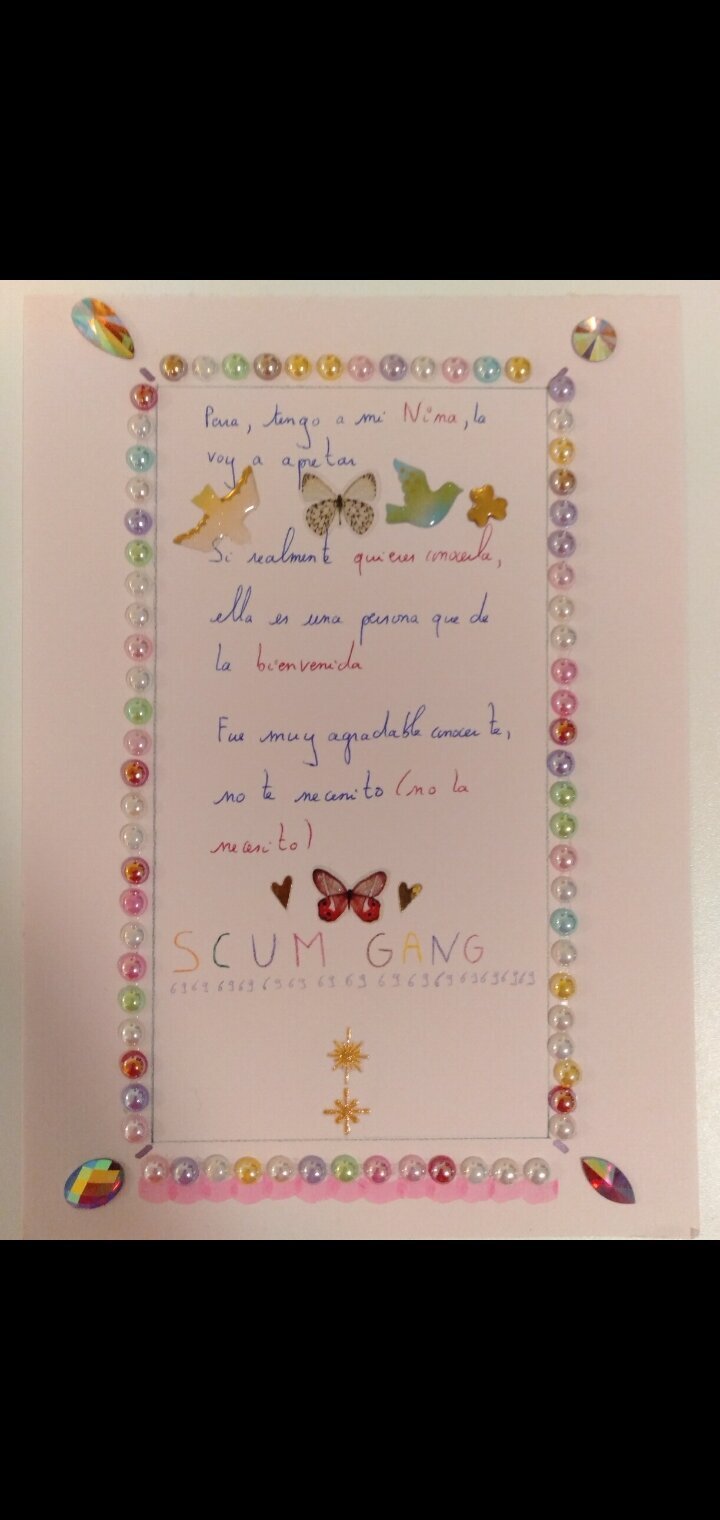 Para, tengo a mi Nina, la
voy a apretar
Si realmente quieres conocerla,
ella es una persona que de
la bienvenida
Fue muy agradable conocerte,
no te necesito (no la
necesito)
SCUM GANG
6969 6969 6969 69 69 69 6969 69696969